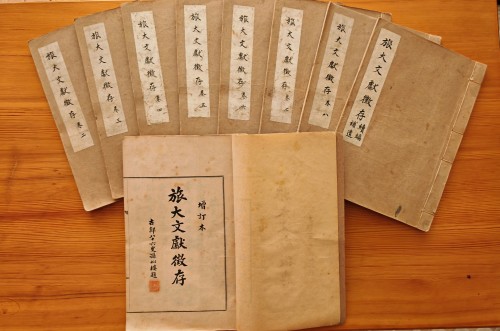 旅大文獻徵存 卷二
旅大文獻徵存 卷三
旅大文獻徵存 卷四
旅大文獻徵存 卷五
旅大文獻徵存 卷六
旅大文獻徵存 卷七
旅大文獻徵存 卷八
旅大文獻徵存 續編補遺
增訂本
旅大文獻徵存
八十六叟孫題